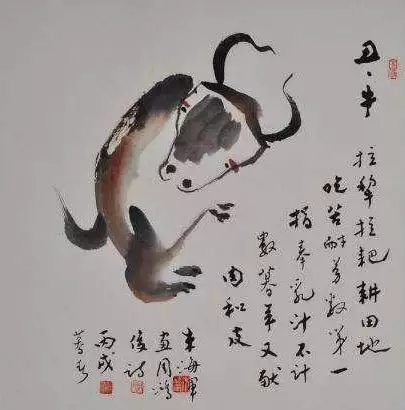 丑·牛
拉犁拉耙耕田地
吃苦耐劳数第一
奉乳汁不计
數暮年又献
肉和皮
海
画周鸿
俊诗
丙戌
暮春